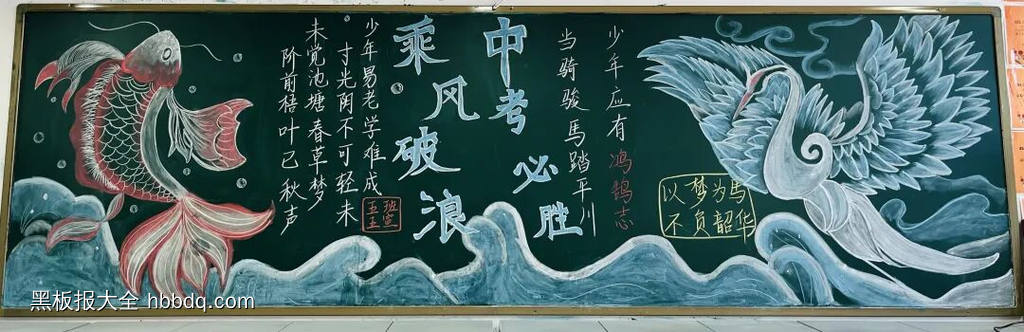 少年应有鸿鹄志
当骑骏马踏平川
中考必胜
乘风破浪
少年易老学难成
一寸光阴不可轻未
未觉池塘春草梦
阶前梧叶已秋声
以梦为马
不负韶华
黑板报大全 hbbdq.com